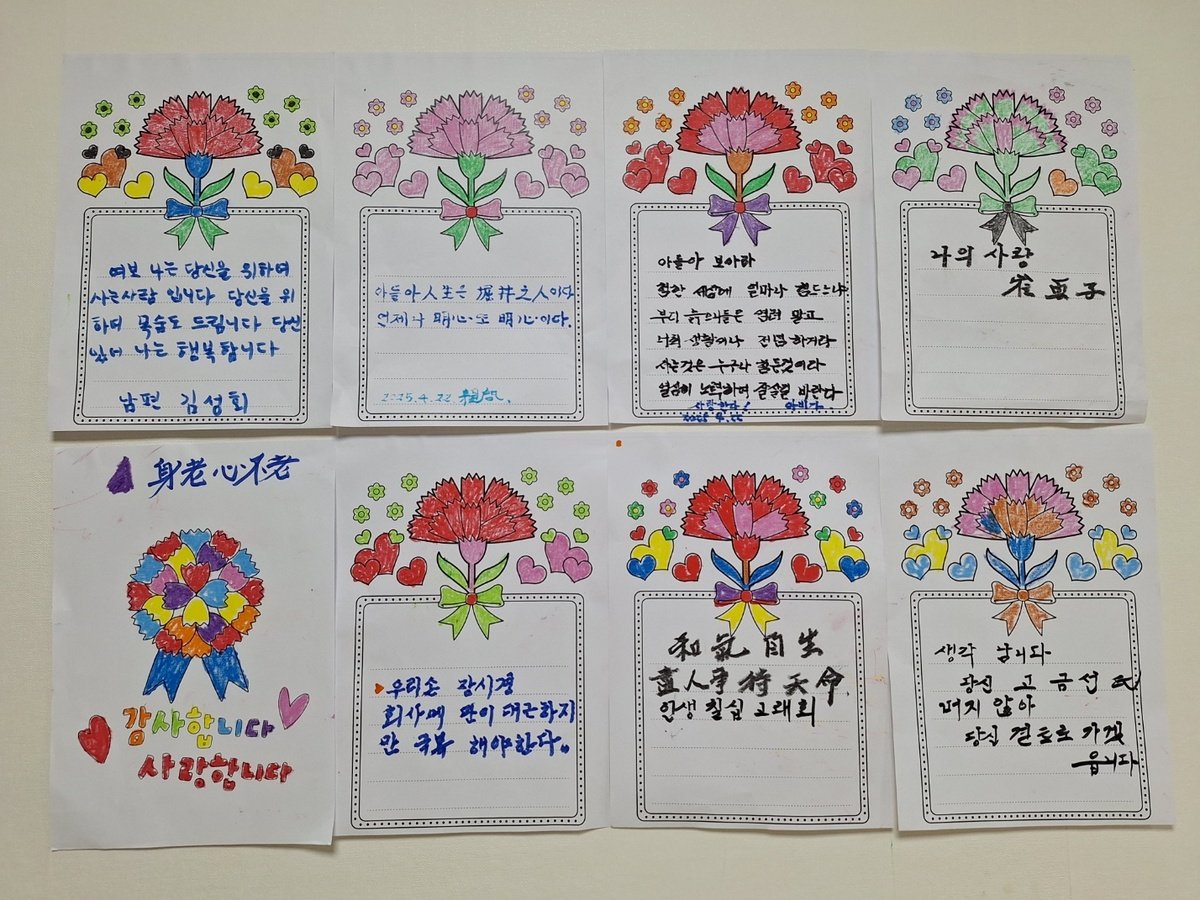 여보 나는 당신을 위하여
사는사람 입니다 당신을 위
하여 목숨도 드립니다 당신
있어 나는 행복합니다
남편 김성회
아들아 人生은 堀井之人이다
언제나 明心又明心이다.
2025.4.22
아들아 보아라
험한 세상에 얼마나 힘드느냐
부디 늙으이들은 염려 말고
너희 생활이나 전념 하거라
사는것은 누구나 힘든것이다
열심히 노력하며 잘살길 바란다
사랑한다! 아비가
2025.4.22
나의 사랑
崔 子
身老心不老
감사합니다
사랑합니다
우리손 장시경
회사에 판이 대근하지
만 국붂 해야한다.
和氣自生
盡人事待天命
인생 칠십 고래희
생각 납니다
당신 고 금선 氏
머지 않아
당신 겯으로 가겟
읍니다